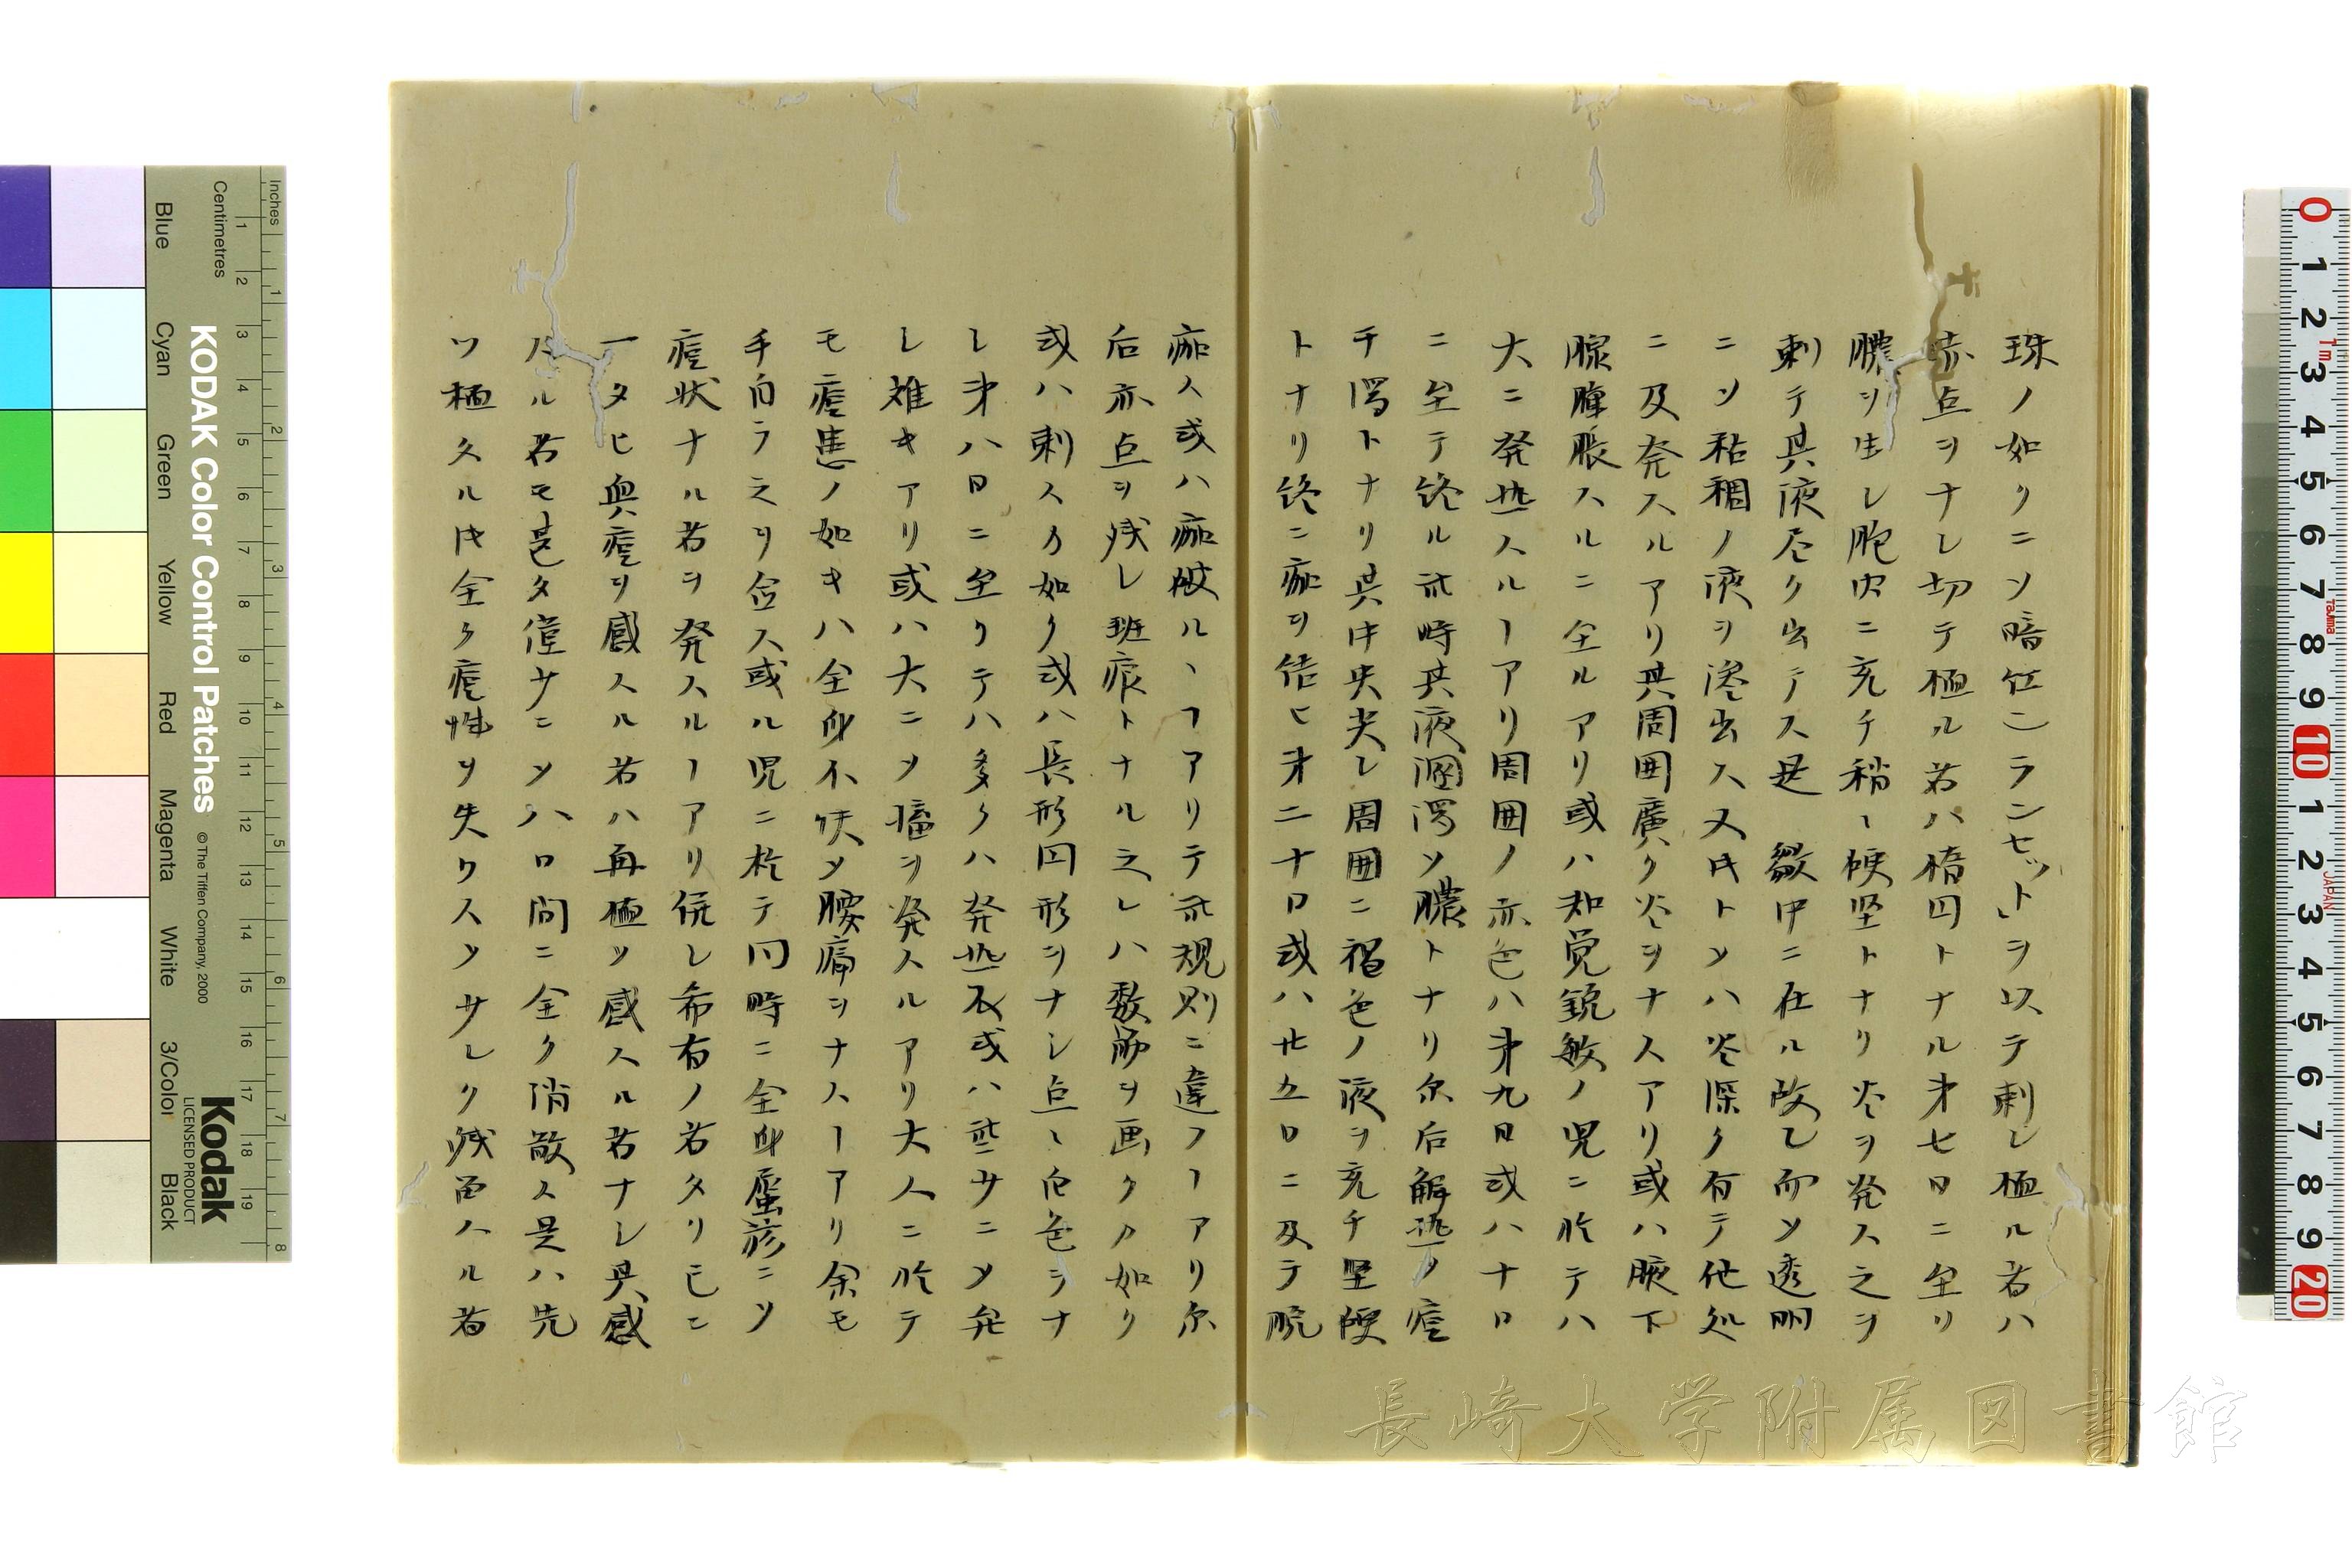 珠ノ如クニシ暗紅ニランセットヲ以テ刺シ種ル者ハ
赤点ヲナシ切テ種ル者ハ楕円トナル才七日ニ至リ
膿ヲ生シ胞内ニ充チ稍々硬堅トナリ炎ヲ発ス之ヲ
刺テ其液尽ク出テス是 皺中ニ在ル故乙而ソ透明
ニソ粘稠ノ液ヲ滲出ス又片トソハ炎深ク有テ他処
ニ及発スルアリ其周囲廣ク炎ヲナスアリ或ハ腋下
腺腫脹スルニ至ルアリ或ハ知覚鋭敏ノ児ニ於テハ
大ニ発熱スルヿアリ周囲ノ赤色ハ才九日或ハ十日
ニ至テ終ル此時其液溷濁ソ膿トナリ尓后解熱ノ痘
チ濁トナリ其中央尖レ周囲ニ褐色ノ液ヲ充チ堅硬
トナリ終ニ痂ヲ結ヒ才二十日或ハ廿五日ニ及テ脱
痂ス或ハ痂破ルヽヿアリテ此規則ニ違フヿアリ尓
后赤点ヲ残シ斑痕トナル之レハ数筋ヲ画クカ如リ
或ハ刺スカ如ク或ハ長形円形ヲナシ点々白色ヲナ
レ才八日ニ至リテハ多クハ発熱不或ハ些サニソ弁
レ雖キアリ或ハ大ニソ搐ヲ発スルアリ大人ニ於テ
モ痘患ノ如キハ全身不快ソ腰痛ヲナスヿアリ余モ
手自ラ之ヲ企ス或ル児ニ於テ同時ニ全身蜃疹ニソ
痘状ナル者ヲ発スルヿアリ併シ希有ノ者タリ已ニ
一タヒ真痘ヲ感スル者ハ再種ソ感スル者ナシ其感
ル者モ甚タ僅サニソ八日間ニ全ク消散ス是ハ先
ソ種タル片全ク痘性ヲ失ワスソサレク残留スル者
KODAK Color Control Patches
© The Tiffen Company, 2000
Kodak
LICENSED PRODUCT
Inches
Centimetres
Blue Cyan Green Yellow Red Magenta White 3/Color Black
長崎大学附属図書館